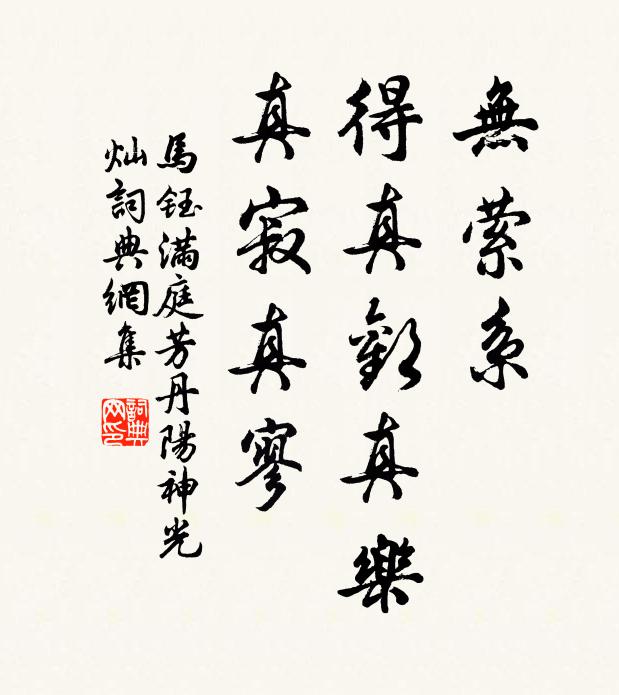 無縈系
得真歡真樂
真寂真寥
馬鈺滿庭芳丹陽神光
灿詞典網集
詞典網印